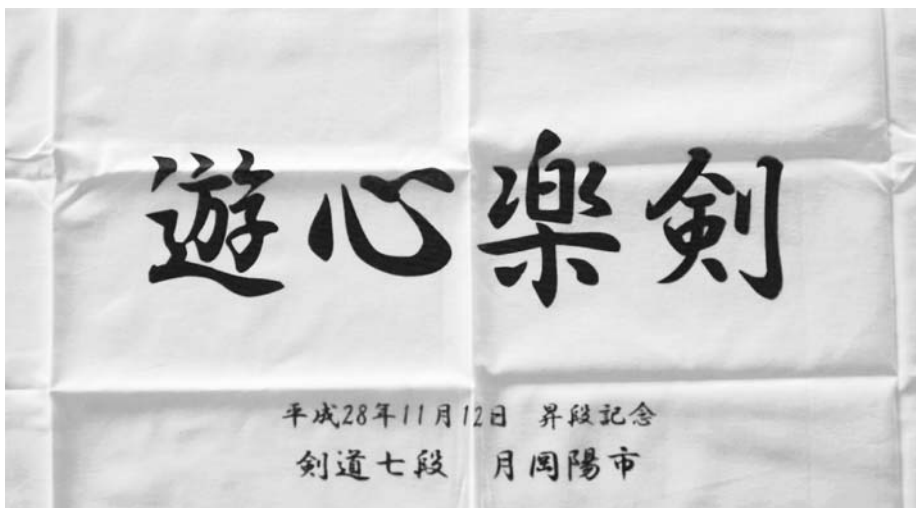 遊心楽剣
平成28年11月12日 昇段記念
剣道七段 月岡陽市